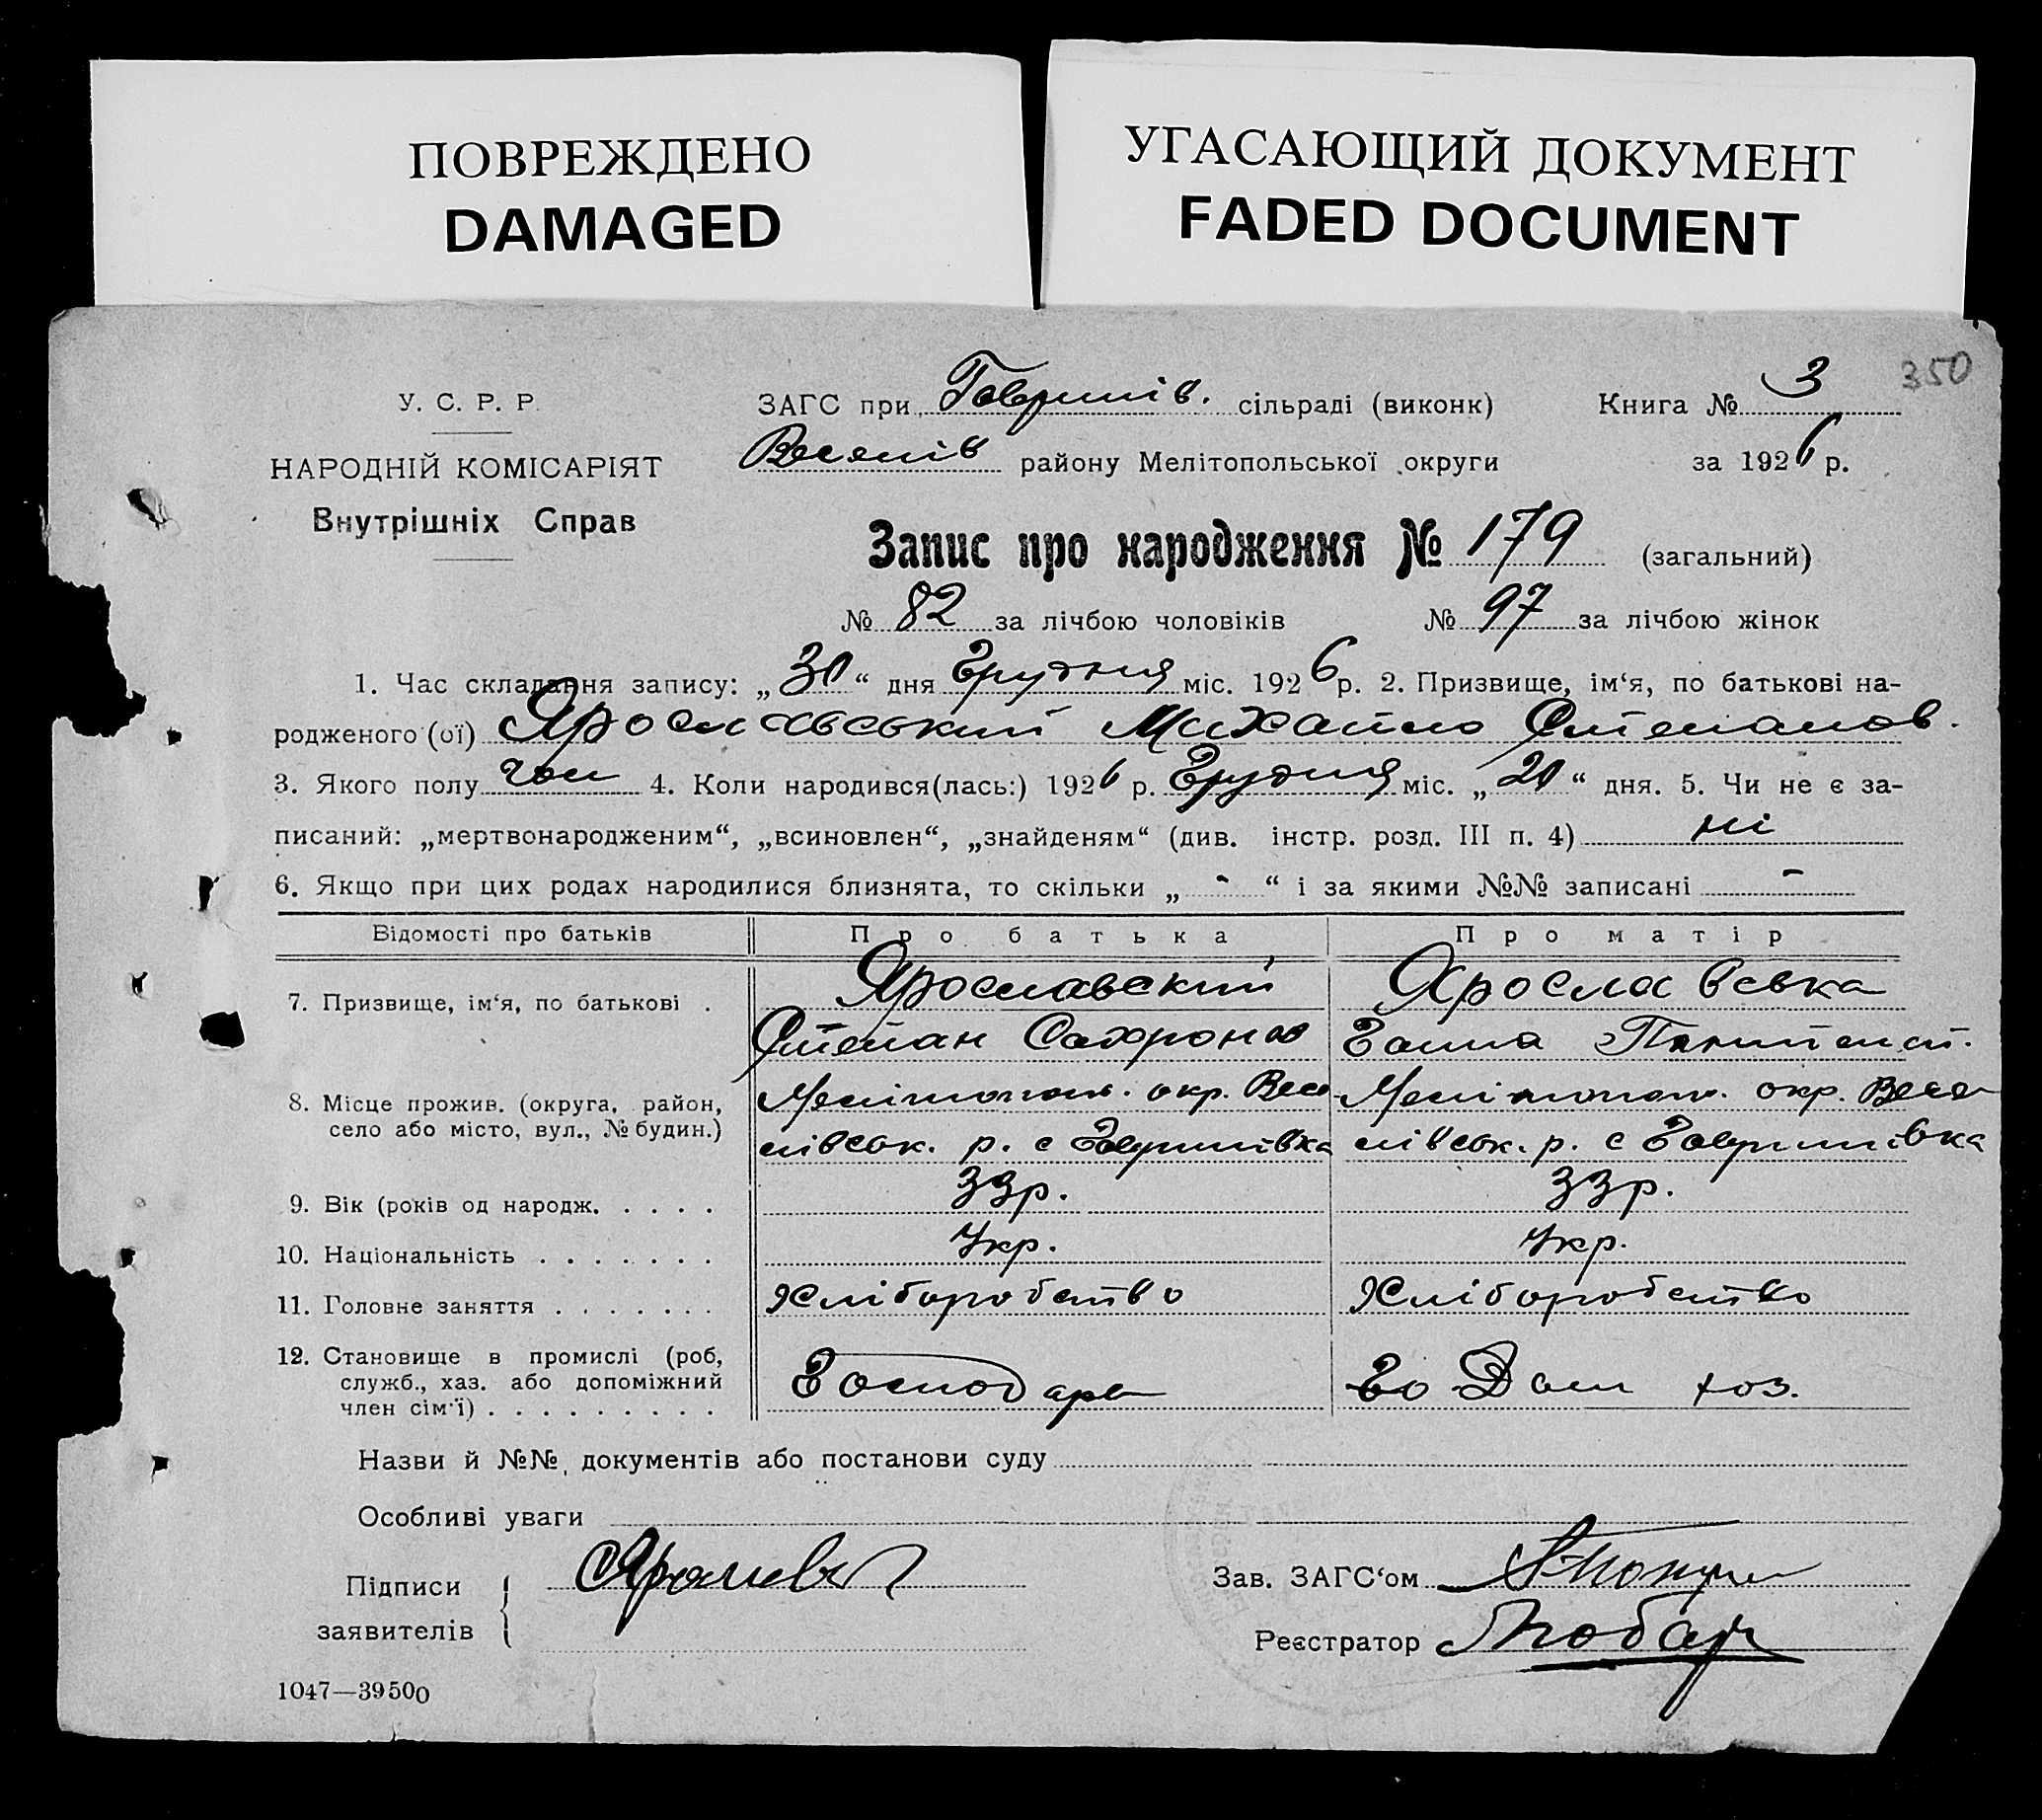 ПОВРЕЖДЕНО
DAMAGED
УГАСАЮЩИЙ ДОКУМЕНТ
FADED DOCUMENT
350
У. С. Р. Р.
НАРОДНІЙ КОМІСАРІЯТ
Внутрішніх Справ
ЗАГС при Гавришів. сільраді (виконк) Книга № 3
Веселів району Мелітопольської округи за 1926 р.
Запис про народження № 179 (загальний)
№ 82 за лічбою чоловіків № 97 за лічбою жінок
1. Час складання запису: „30“ дня Грудня міс. 1926 р. 2. Призвище, ім‘я, по батькові на-
родженого (ої) Ярославський Михайло Степанов.
3. Якого полу чол 4. Коли народився(лась:) 1926 р. Грудня міс. „20“ дня. 5. Чи не є за-
писаний: „мертвонародженим“, „всиновлен“, „знайденям“ (див. інстр. розд. III п. 4) ні
6. Якщо при цих родах народилися близнята, то скільки „ - “ і за якими №№ записані -
Відомості про батьків Про батька Про матір
7. Призвище, ім‘я, по батькові . Ярославский Ярославська
Степан Сафронов Ганна
8. Місце прожив. (округа, район, Мелітополь. окр. Весе Мелітопол. окр. Весе
село або місто, вул., № будин.) лівськ. р. с Гавришівка лівськ. р. с Гавришівка
9. Вік (років од народж. . . . . 33р. 33р.
10. Національність . . . . . . . Укр. Укр.
11. Головне заняття . . . . . . . Хліборобство Хліборобство
12. Становище в промислі (роб,
служб., хаз. або допоміжний Господарь Дом хоз.
член сім‘ї) . . . . . . . . .
Назви й №№ документів або постанови суду
Особливі уваги
Підписи
заявителів
Зав. ЗАГС‘ом
Реєстратор
1047—39500